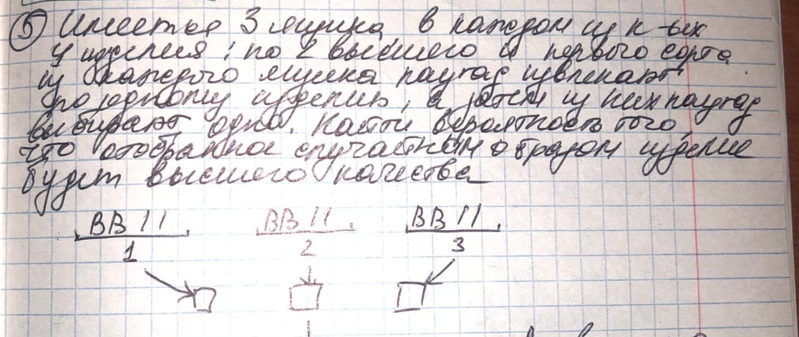 ⑤ Имеется 3 ящика, в каждом из к-ых
4 изделия: по 2 высшего и первого сорта
из каждого ящика наугад извлекают
по одному изделию, а затем из них наугад
выбирают одно. Найти вероятность того,
что отобранное случайным образом изделие
будет высшего качества
ВВ11 ВВ11 ВВ11
1 2 3